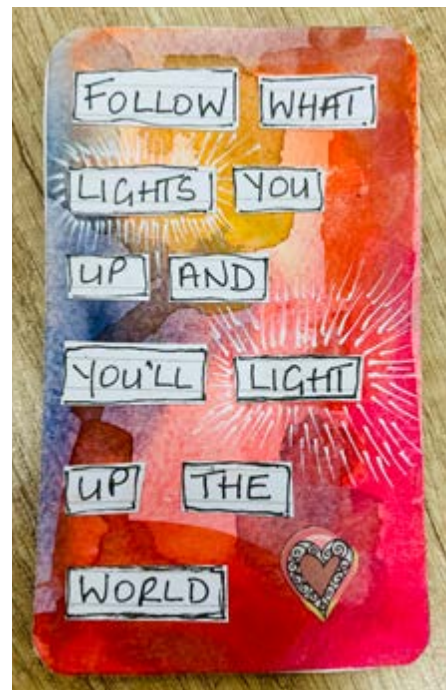 FOLLOW WHAT
LIGHTS YOU
UP AND
YOU'LL LIGHT
UP THE
WORLD